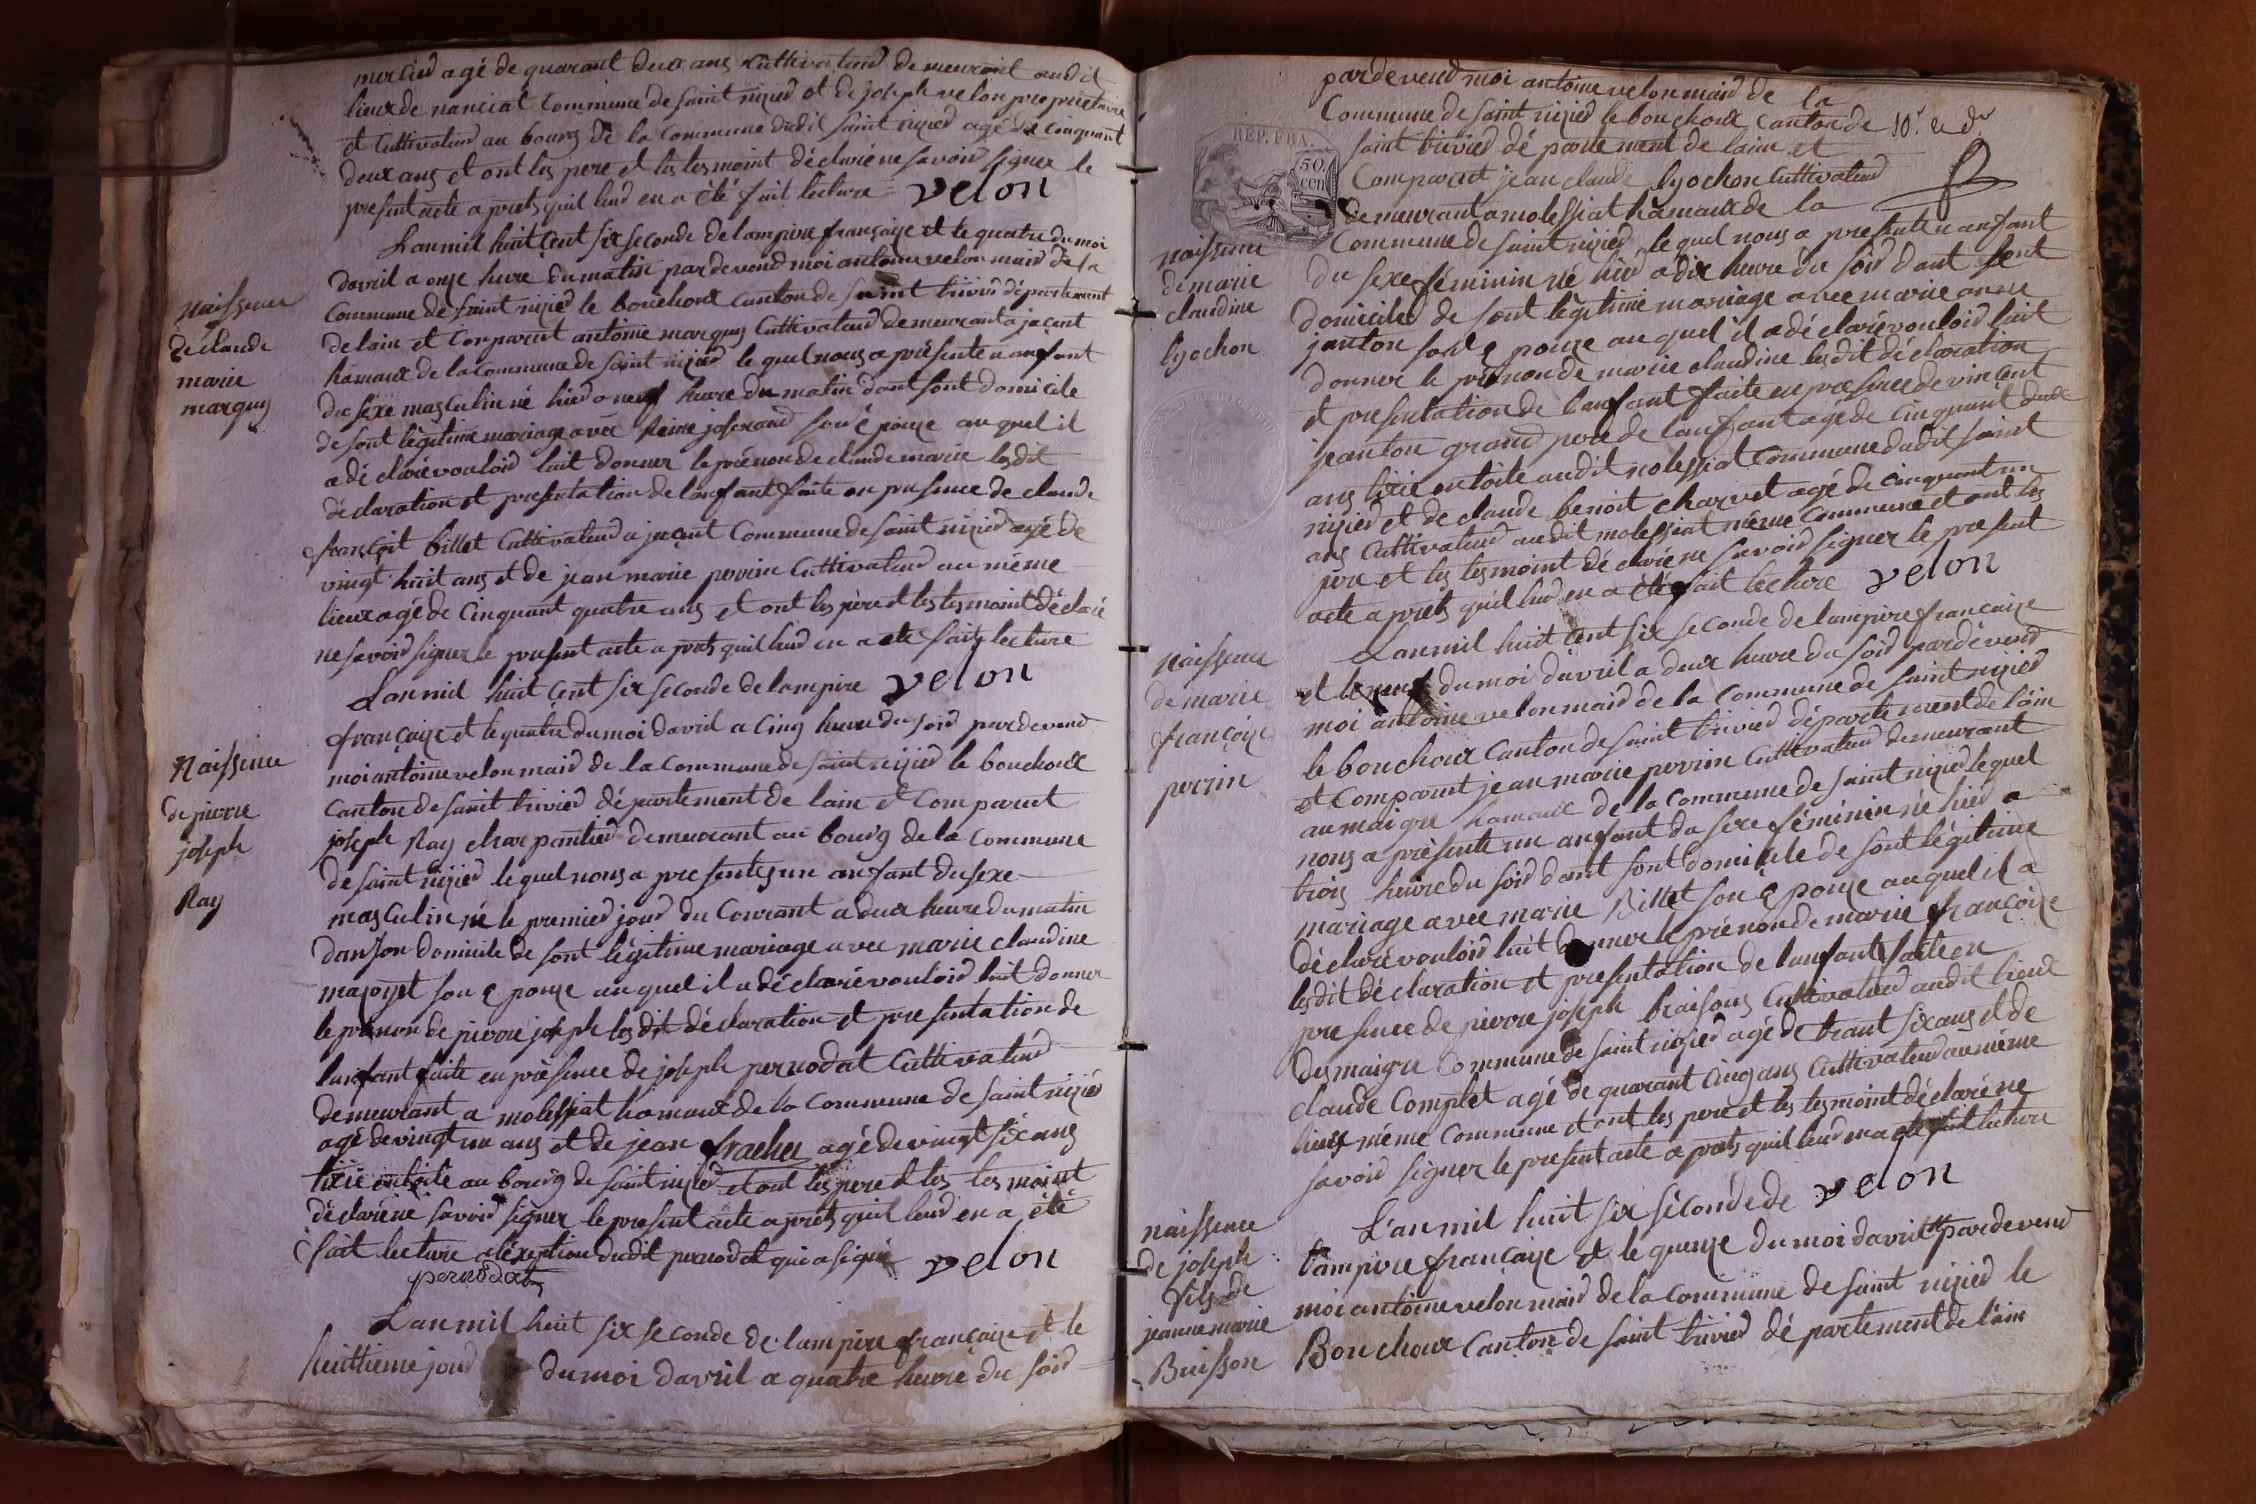 mercier agé de quarant deux ans Cultivateur demeurant audit
lieux de nanciat Commune de saint nizier et de joseph velon proprietaire
et Cultivateur au bourg de la Commune dudit saint nizier agé de cinquant
deux ans et ont les pere et les tesmoint déclaré ne savoir signer le
present acte aprets quil leur en a été fait lecture velon
Naissence
de claude
marie
marguy
Lan mil huit cent six seconde de lampire françaize et le quatre du moi
davril a onze heure du matin pardevend moi antoine velon maire de la
Commune de saint nizier le bouchoux canton de saint trivier département
de lain et Comparut antoine marguy Cultivateur demeurant a jaçent
hamaux de la commune de saint nizier le quel nous a présente un anfant
du sexe masculin né hier a neuf heure du matin dant sont domicile
de sont légitime mariage avec reine joserand son épouze au quel il
a déclaré vouloir luit donner le prénon de claude marie lesdit
déclaration et presentation de lanfant faite en presence de claude
françoit billet Cultivateur a jaçent Commune de saint nizier agé de
vingt huit ans et de jean marie perrin Cultivateur au même
lieux agé de cinquant quatre ans et ont les père et les tesmoint déclaré
ne savoir signer le present acte a prets quil leur en a été fait lecture
velon
Naissence
de pierre
joseph
Ray
Lan mil huit cent six seconde de lampire
françaize et le quatre du moi davril a cinq heure du soir pardevend
moi antoine velon maire de la commune de saint nizier le bouchoux
canton de saint trivier département de lain et Comparut
joseph Ray charpantier demeurant au bourg de la Commune
de saint nizier le quel nous a presentes un anfant du sexe
masculin né le premier jour du Courant a deux heure du matin
dan son domicile de sont légitime mariage avec marie claudine
majoyet son épouze au quel il a déclaré vouloir luit donner
le prénon de pierre joseph les dit déclaration et presentation de
lanfant faite en présence de joseph pernodat Cultivateur
demeurant a molessiat hamaux de la Commune de saint nizié
agé de vingt un ans et de jean fracher agé de vingt six ans
tixié en toile au bourg de saint nizier et ont les pere et les tesmoint
déclaré ne savoir signer le present acte aprets quil leur en a été
fait lecture a léxeption dudit pernodat qui a signé velon
pernodat
Lan mil huit six seconde de lampire françaize et le
huittieme jour du moi davril a quatre heure du soir
pardevend moi antoine velon maire de la
Commune de saint nizier le bouchoux Canton de
saint trivier département de lain et
Comparut jean claude lyochon Cultivateur
demeurant a molessiat hamaux de la
REP. FRA.
50.
cen
naissence
de marie
claudine
lyochon
Commune de saint nizier le quel nous a presente un anfant
du sexe féminin né hier a dix heure du soir dant sont
domicile de sont légitime mariage avec marie anne
janton son épouze au quel il a déclaré vouloir luit
donner le prénon de marie claudine lesdit déclaration
et presentation de lanfant faite en presence de vincent
jeanton grand pere de lanfant agé de cinquant deux
ans tixié en toile audit molessiat Commune dudit saint
nizier et de claude benoit charvet agé de cinquant un
ans Cultivateur audit molessiat même Commune et ont les
pere et les tesmoint déclaré ne savoir signer le present
acte aprets quil leur en a été fait lecture velon
naissence
de marie
françoize
perrin
Lan mil huit cent six seconde de lampire françaize
et le neuf du moi davril a deux heure du soir pardevend
moi antoine velon maire de la Commune de saint nizier
le bouchoux Canton de saint trivier département de lain
et Comparut jean marie perrin Cultivateur demeurant
au maigre hamaux de la Commune de saint nizier le quel
nous a présente un anfant du sexe féminin né hier a
trois heure du soir dant sont domicile de sont légitime
mariage avec marie Billet son épouze au quel il a
déclaré vouloir luit donner le prénon de marie françoize
lesdit déclaration et presentation de lanfant faite en
presence de pierre joseph braisons Cultivateur audit lieux
du maigre Commune de saint nizier agé de trant six ans et de
claude Complet agé de quarant cinq ans Cultivateur au même
lieux même commune et ont les pere et les tesmoint déclaré ne
savoir signer le present acte aprets quil leur en a été fait lecture
velon
naissence
de joseph
fils de
jeanne marie
Buisson
L'an mil huit six séconde de
lampire françaize et le quenze du moi davril pardevend
moi antoine velon maire de la commune de saint nizier le
Bouchoux Canton de saint trivier département de lain